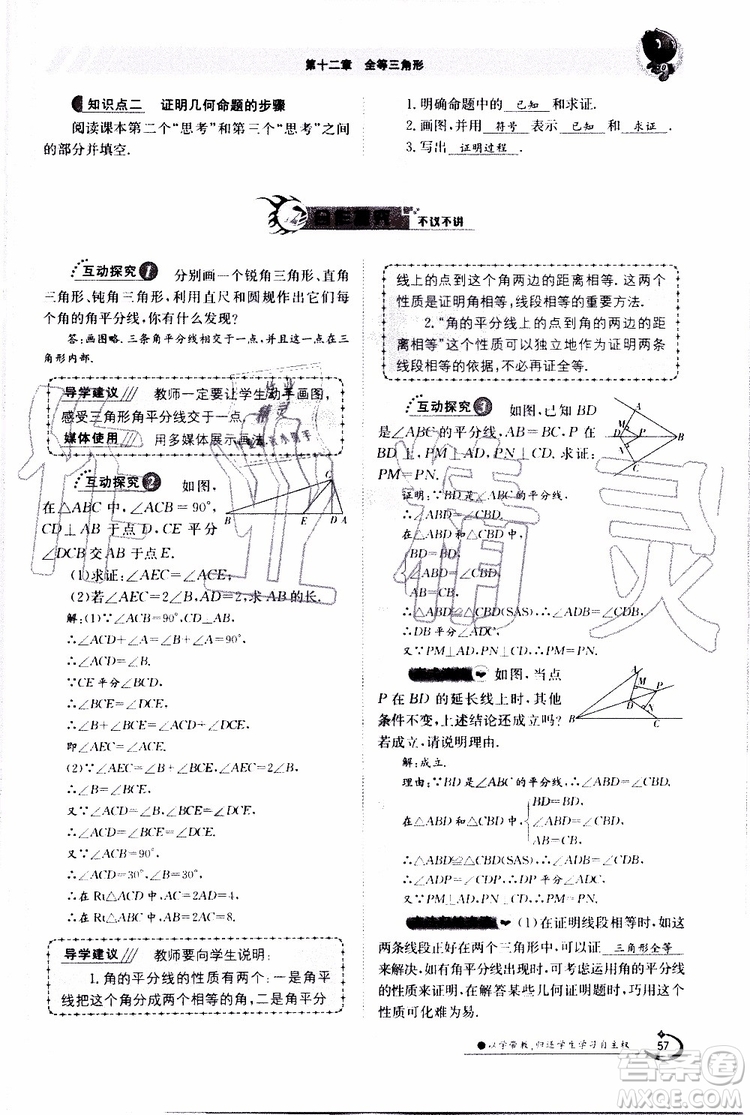 第十二章　全等三角形
知识点二　证明几何命题的步骤
阅读课本第二个“思考”和第三个“思考”之间
的部分并填空.
1. 明确命题中的 已知 和求证.
2. 画图,并用 符号 表示 已知 和 求证 .
3. 写出 证明过程 .
不议不讲
互动探究1　分别画一个锐角三角形、直角
三角形、钝角三角形,利用直尺和圆规作出它们每
个角的角平分线,你有什么发现?
答:画图略.三条角平分线相交于一点,并且这一点在三
角形内部.
导学建议　教师一定要让学生动手画图,
感受三角形角平分线交于一点.
媒体使用　用多媒体展示画法.
互动探究2　如图,
在△ABC中,∠ACB=90°,
CD⊥AB于点D,CE平分
∠DCB交AB于点E.
(1)求证:∠AEC=∠ACE;
(2)若∠AEC=2∠B,AD=2,求AB的长.
C
B E D A
解:(1)∵∠ACB=90°,CD⊥AB,
∴∠ACD+∠A=∠B+∠A=90°,
∴∠ACD=∠B.
∵CE平分∠BCD,
∴∠BCE=∠DCE,
∴∠B+∠BCE=∠ACD+∠DCE,
即∠AEC=∠ACE.
(2)∵∠AEC=∠B+∠BCE,∠AEC=2∠B,
∴∠B=∠BCE.
又∵∠ACD=∠B,∠BCE=∠DCE,
∴∠ACD=∠BCE=∠DCE.
又∵∠ACB=90°,
∴∠ACD=30°,∠B=30°,
∴在Rt△ACD中,AC=2AD=4,
∴在Rt△ABC中,AB=2AC=8.
导学建议　教师要向学生说明:
1.角的平分线的性质有两个:一是角平
分线把这个角分成两个相等的角,二是角平分
线上的点到这个角两边的距离相等.这两个
性质是证明角相等,线段相等的重要方法.
2.“角的平分线上的点到角的两边的距
离相等”这一结论可以独立地作为证明两条
线段相等的依据,不必再证全等.
互动探究3　如图,已知BD
是∠ABC的平分线,AB=BC,P在
BD上,PM⊥AD,PN⊥CD.求证:
PM=PN.
A
M
D P B
N
C
证明:∵BD是∠ABC的平分线,
∴∠ABD=∠CBD.
在△ABD和△CBD中,
BD=BD,
∠ABD=∠CBD,
AB=CB,
∴△ABD≌△CBD(SAS),∴∠ADB=∠CDB,
∴DB平分∠ADC.
又∵PM⊥AD,PN⊥CD,∴PM=PN.
如图,当点
P在BD的延长线上时,其他
条件不变,上述结论还成立吗?
若成立,请说明理由.
A
M P
D
N
B C
解:成立.
理由:∵BD是∠ABC的平分线,∴∠ABD=∠CBD.
BD=BD,
在△ABD和△CBD中,∠ABD=∠CBD,
AB=CB,
∴△ABD≌△CBD(SAS),∴∠ADB=∠CDB,
∴∠ADP=∠CDP.
又∵PM⊥AD,PN⊥CD,∴PM=PN.
(1)在证明线段相等时,如这
两条线段正好在两个三角形中,可以证 三角形全等
来解决,如有角平分线出现时,可灵活运用角的平分线
的性质来证明,在解答某些几何证明题时,巧用这个性
质可化难为易.
以学带教,归还学生学习自主权
57
作业精灵
答案圈